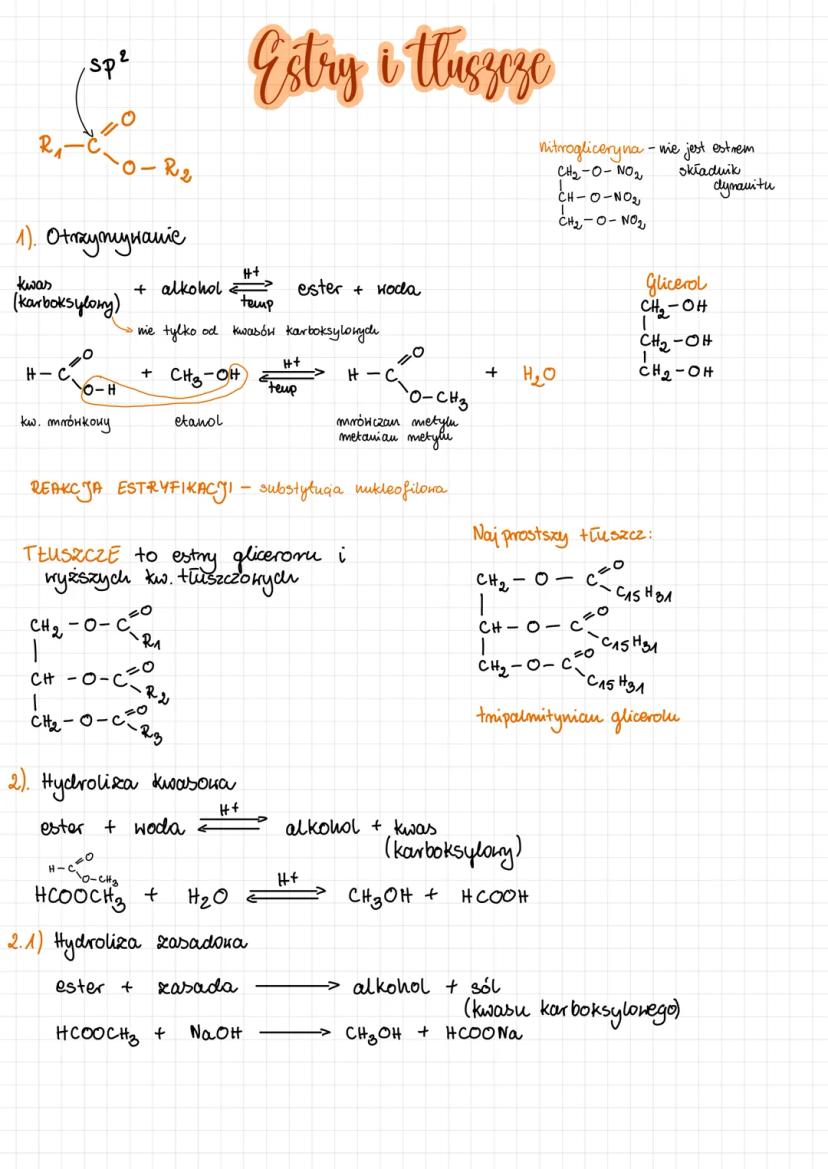 Estry i tłuszcze
sp²
R₁–C=O
O–R₂
nitrogliceryna – nie jest estrem
CH₂–O–NO₂ składnik
dynamitu
CH–O–NO₂
CH₂–O–NO₂
1). Otrzymywanie
kwas
(karboksylowy) + alkohol ⇌ ester + woda
H+
temp
nie tylko od kwasów karboksylowych
Glicerol
CH₂–OH
CH₂–OH
CH₂–OH
H–C=O
O–H + CH₃–OH ⇌ H–C=O
O–CH₃ + H₂O
H+
temp
kw. mrówkowy etanol mrówczan metylu
metanian metylu
REAKCJA ESTRYFIKACJI – substytucja nukleofilowa
TŁUSZCZE to estry gliceronu i
wyższych kw. tłuszczowych
CH₂–O–C=O
R₁
CH–O–C=O
R₂
CH₂–O–C=O
R₃
Najprostszy tłuszcz:
CH₂–O–C=O
C₁₅H₃₁
CH–O–C=O
C₁₅H₃₁
CH₂–O–C=O
C₁₅H₃₁
tripalmitynian glicerolu
2). Hydroliza kwasowa
ester + woda ⇌ alkohol + kwas
H+
(karboksylowy)
H–C=O
O–CH₃
HCOOCH₃ + H₂O ⇌ CH₃OH + HCOOH
H+
2.1) Hydroliza zasadowa
ester + zasada ⟶ alkohol + sól
(kwasu karboksylowego)
HCOOCH₃ + NaOH ⟶ CH₃OH + HCOONa